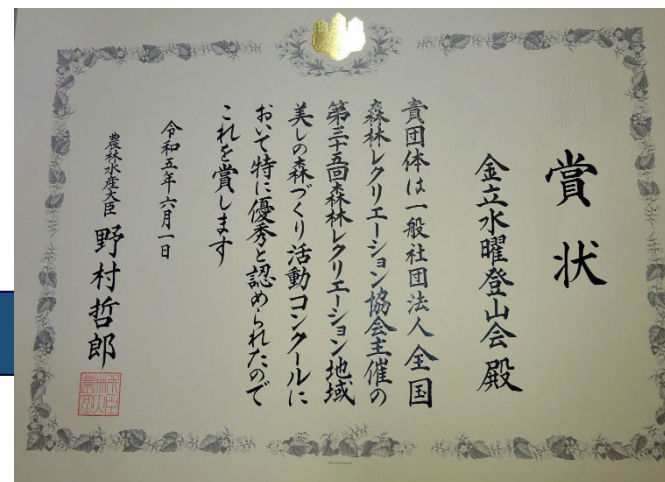 賞状
金立水曜登山会殿
貴団体は一般社団法人全国
森林レクリエーション協会主催の
第三十五回森林レクリエーション地域
美しの森づくり活動コンクールに
おいて特に優秀と認められたので
これを賞します
令和五年六月一日
農林水産大臣 野村哲郎